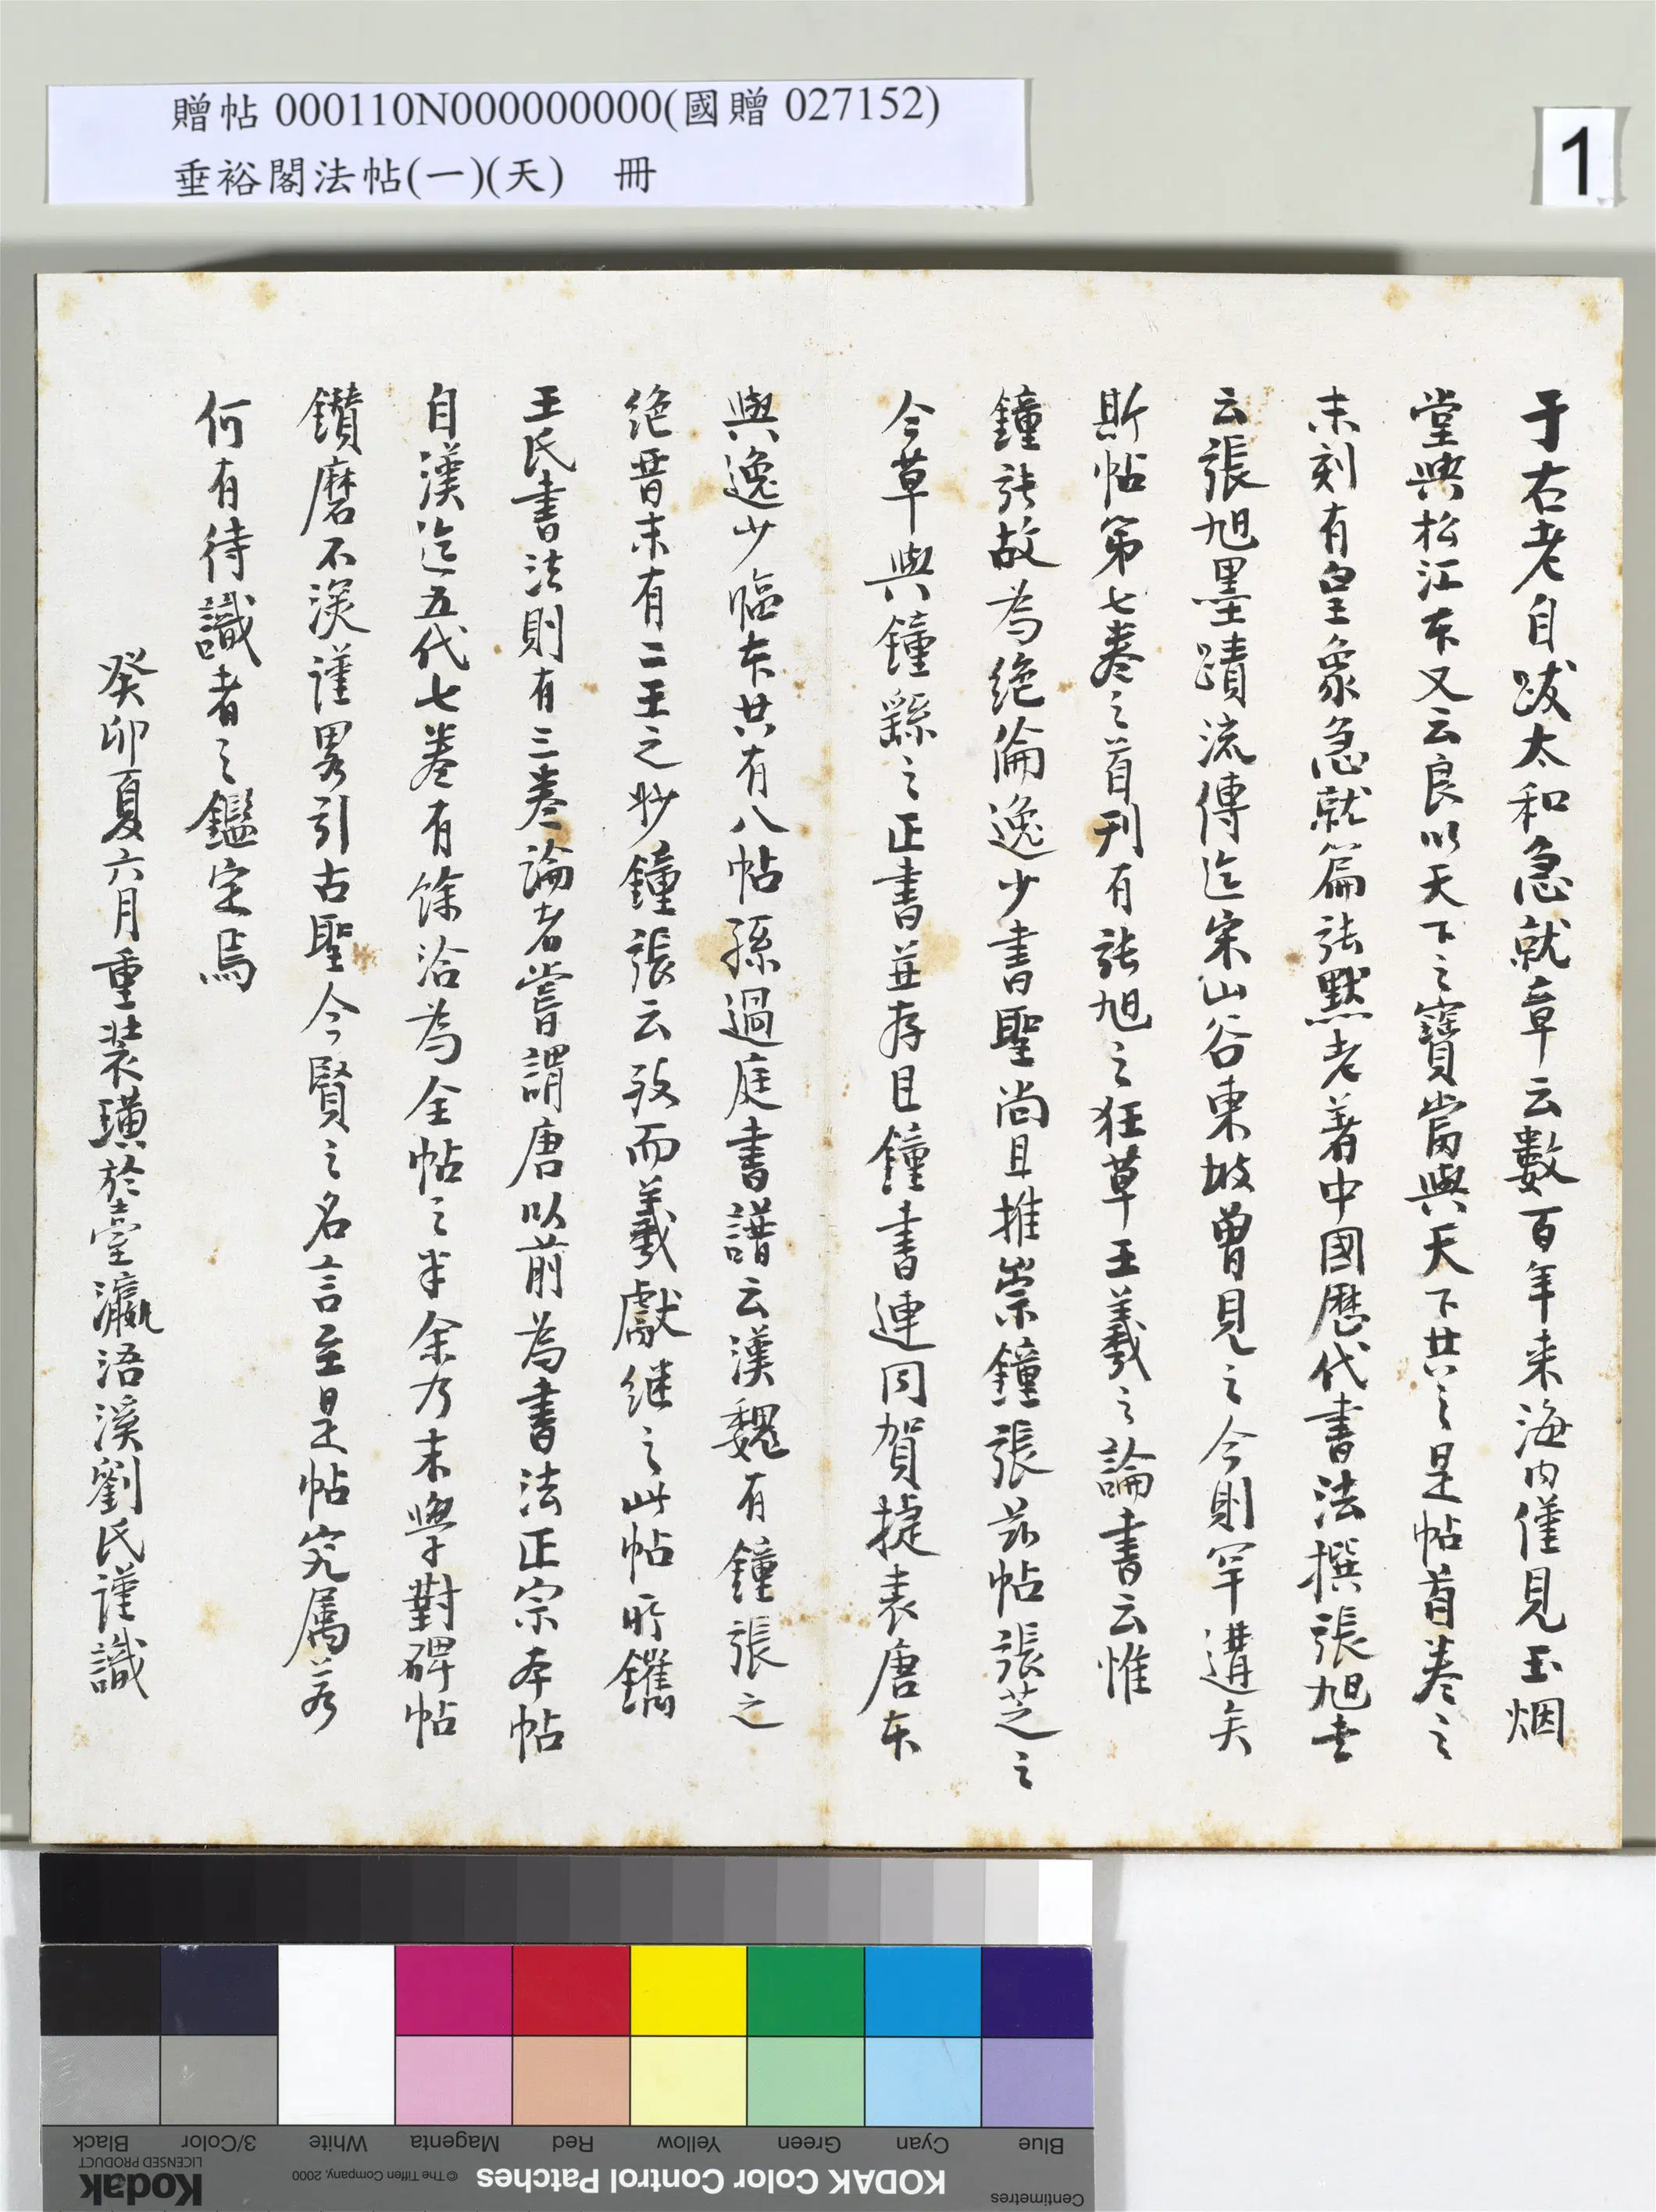 贈帖 000110N000000000(國贈 027152)
垂裕閣法帖(一)(天) 冊
1
于右老自跋太和急就章云數百年来海内僅見玉烟
堂與松江本又云良以天下之寶當與天下共之是帖首卷之
末刻有皇象急就篇張默老著中國歷代書法撰張旭老
云張旭墨蹟流傳迄宋山谷東坡曾見之今則罕遘矣
斯帖第七卷之首刊有張旭之狂草王羲之論書云惟
鐘張故為绝倫逸少書聖尚且推崇鐘張茲帖張芝之
今草與鐘繇之正書並存且鐘書連同賀捷表唐本
與逸少臨本共有八帖孫過庭書譜云漢魏有鐘張之
绝晋末有二王之妙鐘張云歿而羲獻继之此帖所鐫
王氏書法則有三卷論者嘗謂唐以前為書法正宗本帖
自漢迄五代七卷有餘洽為全帖之半余乃末學對碑帖
鑽磨不深謹畧引古聖今賢之名言至是帖究属若
何有待識者之鑑定焉
癸卯夏六月重装璜於臺瀛浯溪劉氏謹識
Black
3/Color
White
Magenta
Red
Yellow
Green
Cyan
Blue
Kodak
LICENSED PRODUCT
© The Tiffen Company, 2000
KODAK Color Control Patches
Centimetres